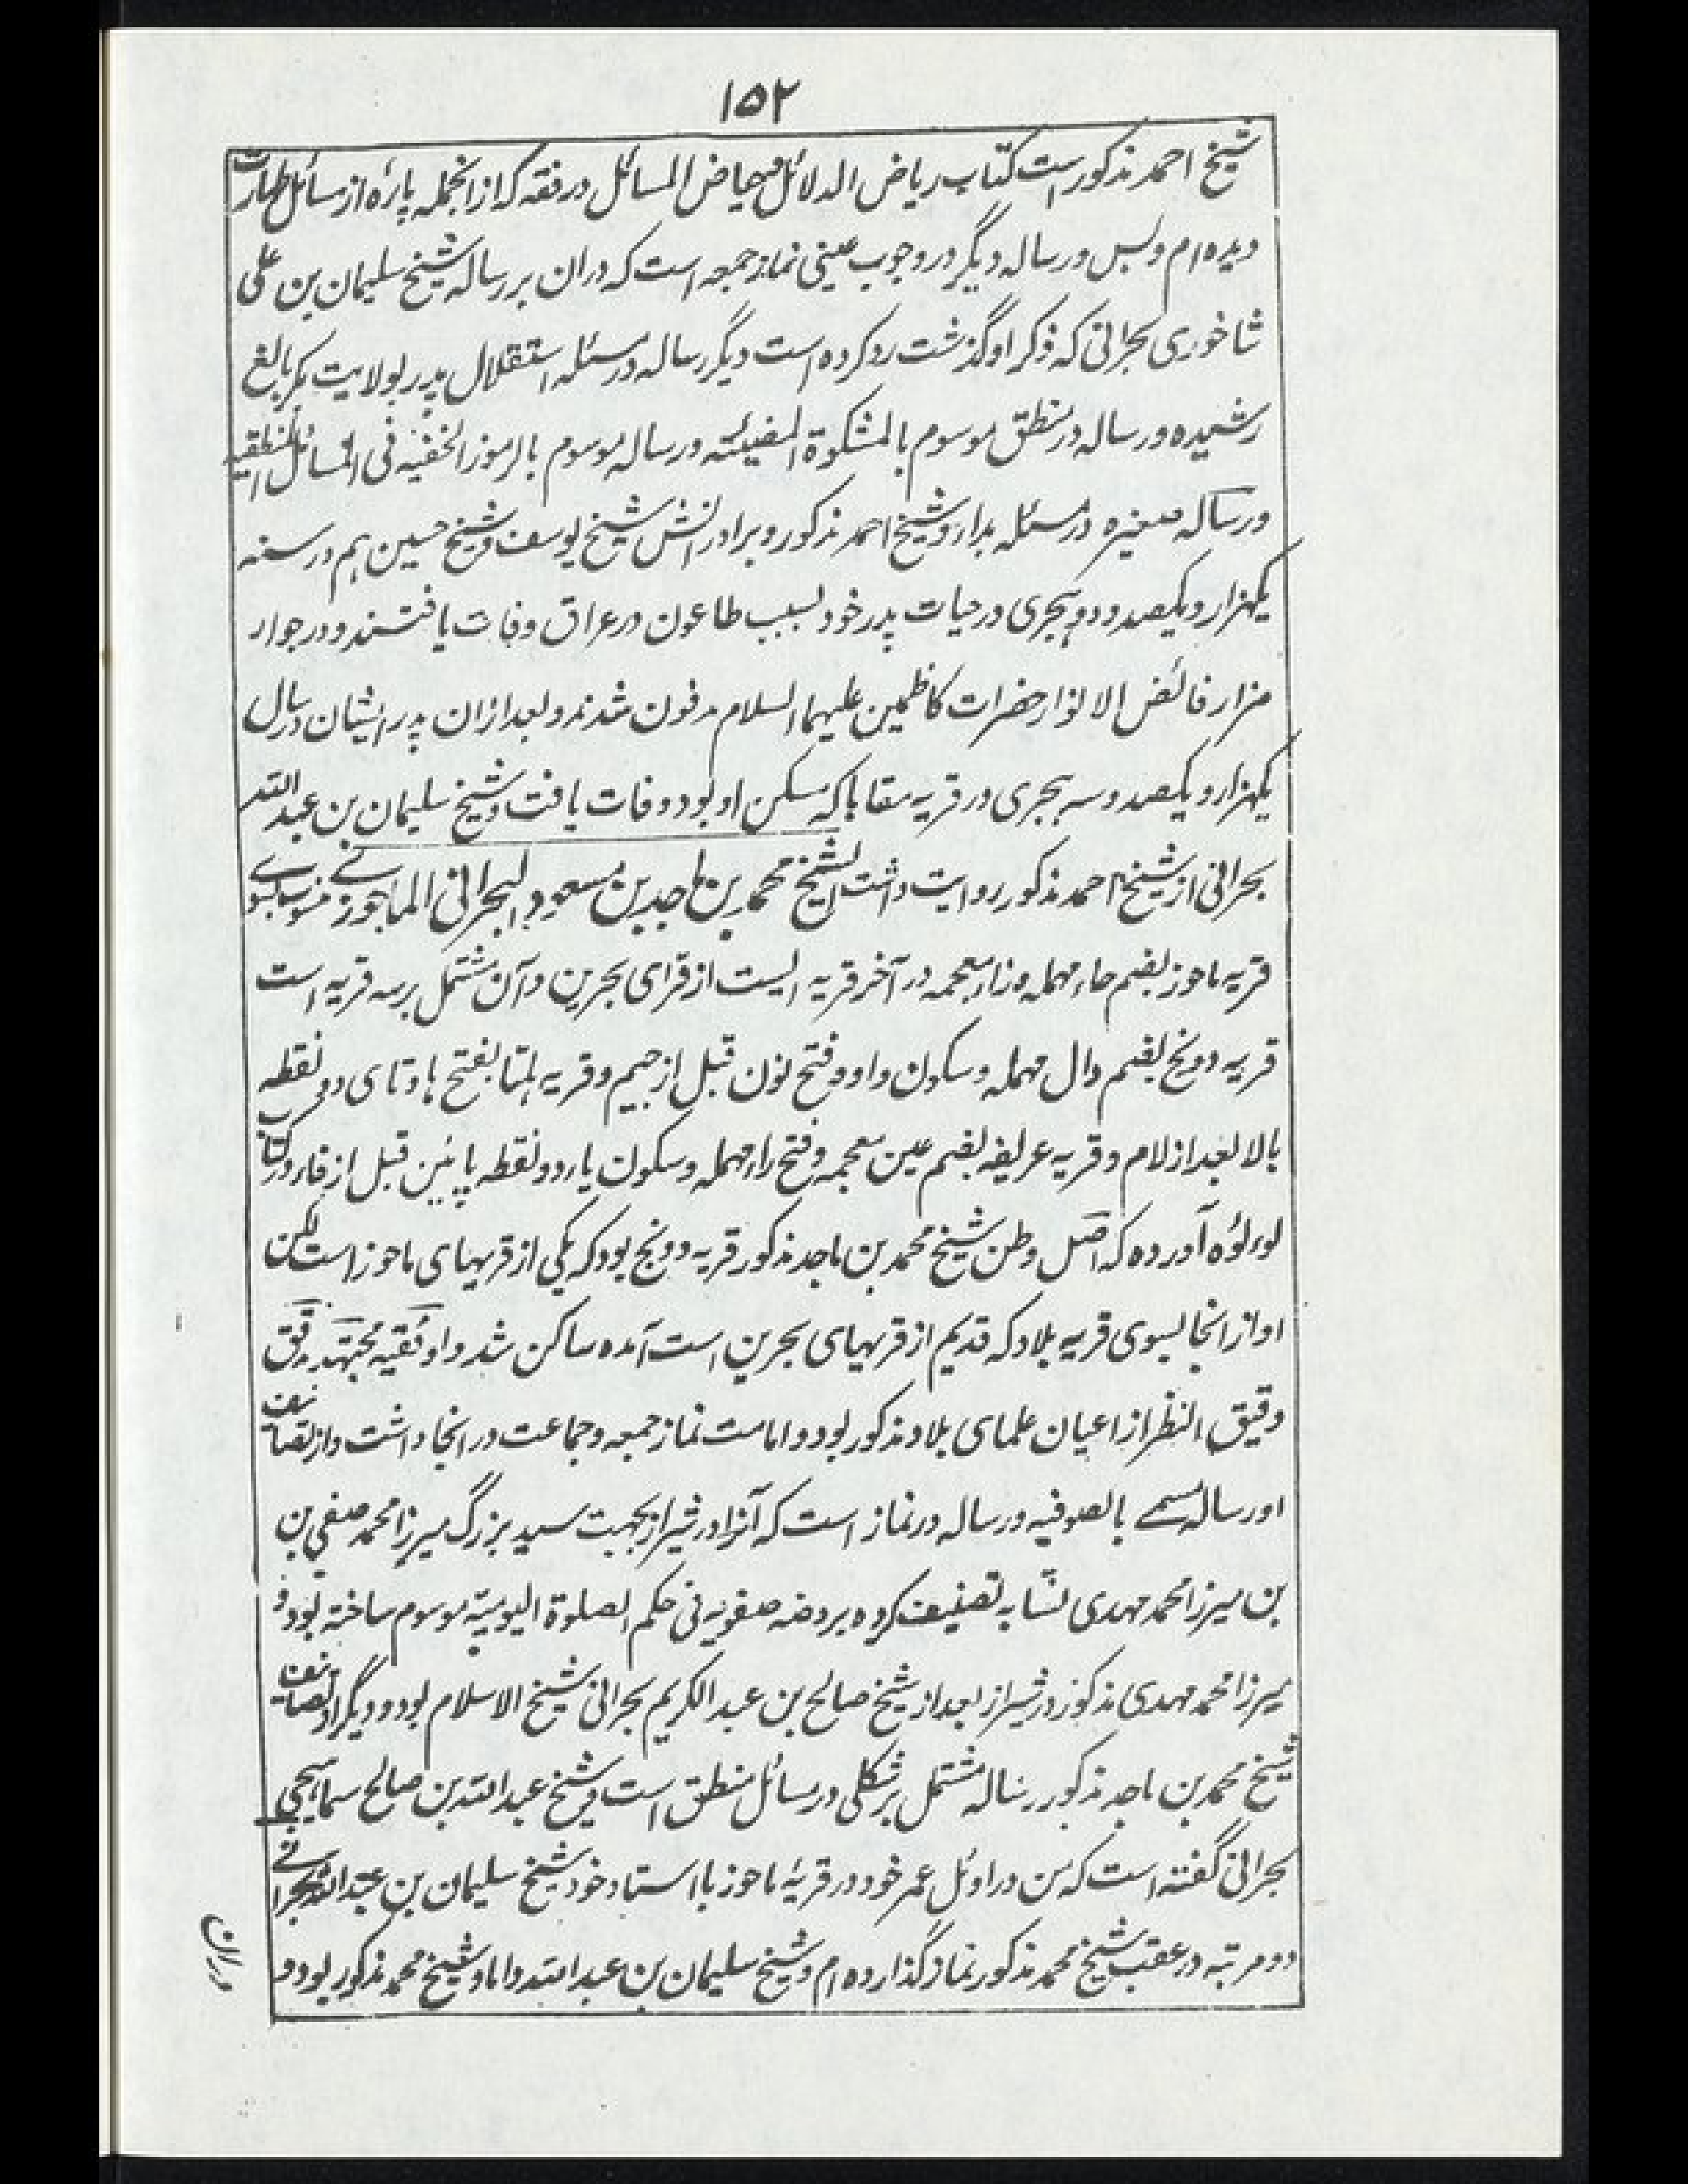 ۱۵۲
شیخ احمد مذکور است کتاب ریاض الدلائل و حیاض المسائل در فقه که از انجمله پارهٔ از رسائل طهارت
دیده ام و بس و رساله دیگر در وجوب عینی نماز جمعه است که دران بر رساله شیخ سلیمان بن علی
شاخوری بحرانی که ذکر او گذشت رد کرده است دیگر رساله در مسئله استقلال پدر بولایت بکر بالغ
رشیده و رساله در منطق موسوم بالمشکوة المضیئه و رساله موسوم بالرموز الخفیه فی المسائل المنطقیه
و رساله صغیره در مسئله بداء و شیخ احمد مذکور و برادرانش شیخ یوسف و شیخ حسین هم در سنه
یکهزار و یکصد و دو هجری در حیات پدر خود بسبب طاعون در عراق وفات یافتند و در جوار
مزار فائض الانوار حضرات کاظمین علیهما السلام مدفون شدند و بعد ازان پدر ایشان در سال
یکهزار و یکصد و سه هجری در قریه مقابا که مسکن او بود وفات یافت و شیخ سلیمان بن عبد الله
بحرانی از شیخ احمد مذکور روایت داشت الشیخ محمد بن ماجد بن مسعود البحرانی الماحوزی منسوب بسوی
قریه ماحوز بضم حاء مهمله و زاء معجمه در آخر قریه ایست از قرای بحرین و آن مشتمل بر سه قریه است
قریه دونج بضم دال مهمله و سکون واو و فتح نون قبل از جیم و قریه هلتا بفتح ها و تای دو نقطه
بالا بعد از لام و قریه غریفه بضم غین معجمه و فتح راء مهمله و سکون یاء دو نقطه پایین قبل از فاء در کتاب
لوءلؤه آورده که اصل وطن شیخ محمد بن ماجد مذکور قریه دونج بود که یکی از قریهای ماحوز است لکن
او از انجا بسوی قریه بلاد که قدیم از قریهای بحرین است آمده ساکن شد و او فقیه مجتهد مدقق
دقیق النظر از اعیان علمای بلاد مذکور بود و امامت نماز جمعه و جماعت در انجا داشت و از تصانیف
او رساله مسمی بالصوفیه و رساله در نماز است که آنرا در شیراز بجهت سید بزرگ میرزا محمد صفی بن
بن میرزا محمد مهدی نسابه تصنیف کرده بروضه صفویه فی حکم الصلوة الیومیة موسوم ساخته بود و
میرزا محمد مهدی مذکور در شیراز بعد از شیخ صالح بن عبد الکریم بحرانی شیخ الاسلام بود و دیگر از تصانیف
شیخ محمد بن ماجد مذکور رساله مشتمل بر شکلی در رسائل منطق است و شیخ عبد الله بن صالح سماهیجی
بحرانی گفته است که من در اوئل عمر خود در قریهٔ ماحوز با استاد خود شیخ سلیمان بن عبد الله بحرانی
دو مرتبه در عقب شیخ محمد مذکور نماز گذارده ام و شیخ سلیمان بن عبد الله داماد شیخ محمد مذکور بود و
دران